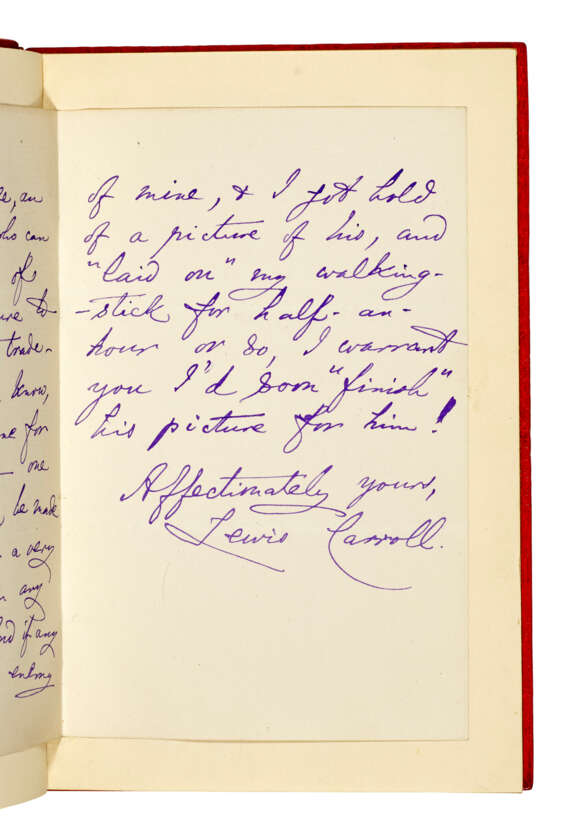 e, an
who can
of
ure to
trade-
know,
me for
— one
be made
a very
any
and if any
of mine, & I got hold
of a picture of his, and
"laid on" my walking-
-stick for half-an-
hour or so, I warrant
you I'd soon "finish"
his picture for him!
Affectionately yours,
Lewis Carroll.